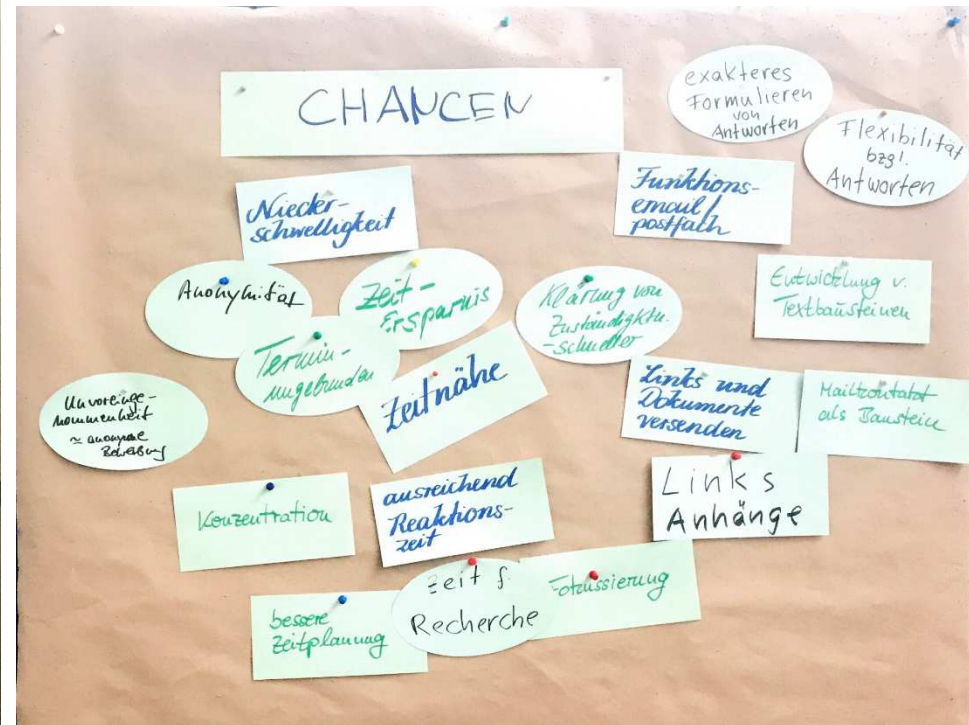 CHANCEN
exakteres
Formulieren
von
Antworten
Flexibilität
bzgl.
Antworten
Nieder-
schwelligkeit
Funktions-
email/
postfach
Anonymität
Zeit-
Ersparnis
Klärung von
Zuständigktn.
-schneller
Entwicklung v.
Textbausteinen
Termin-
ungebunden
Zeitnähe
Links und
Dokumente
versenden
Mailkontakt
als Bausteine
Unvoreinge-
nommenheit
≈ anonyme
Konzentration
ausreichend
Reaktions-
zeit
Links
Anhänge
bessere
Zeitplanung
Zeit f.
Recherche
Fokussierung